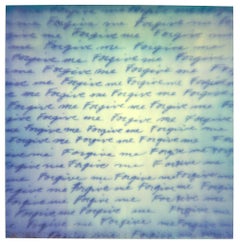 Forgive me Forgive me
Forgive me Forgive me Forgive
me Forgive me Forgive me
Forgive me Forgive me Forgive me
Forgive me Forgive me Forgive
me Forgive me Forgive me Forgive
me Forgive me Forgive me
Forgive me Forgive me Forgive me
Forgive me Forgive me Forgive
me Forgive me Forgive me Forgive
me Forgive me Forgive me Forgive
Forgive me Forgive me Forgive
me Forgive me Forgive me
Forgive me Forgive me